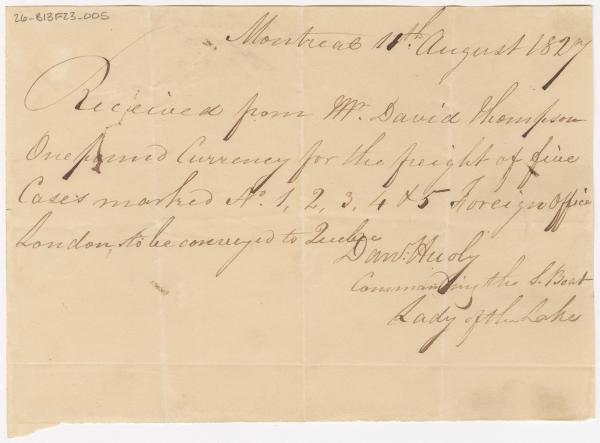 26-B13F23-005
Montreal 11th August 1827
Received from Mr. David Thompson
One pound Currency for the freight of five
Cases marked No. 1, 2, 3, 4 & 5 Foreign Office
London, to be conveyed to Quebec
Commanding the S. Boat
Lady of the Lake